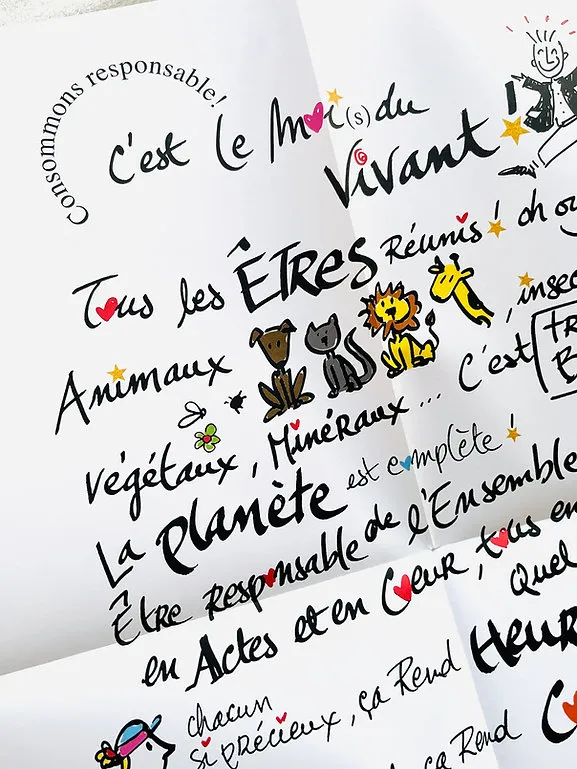 Consommons responsable!
C'est le Moi(s) du
Vivant!
Tous les ÊTRES Réunis! oh
Animaux
, insec
Végétaux, Minéraux... C'est
La Planète est complète!
Être Responsable de l'Ensemble
en Actes et en Cœur, tous en
Quel
chacun
si précieux, ça Rend HEUR
ça Rend